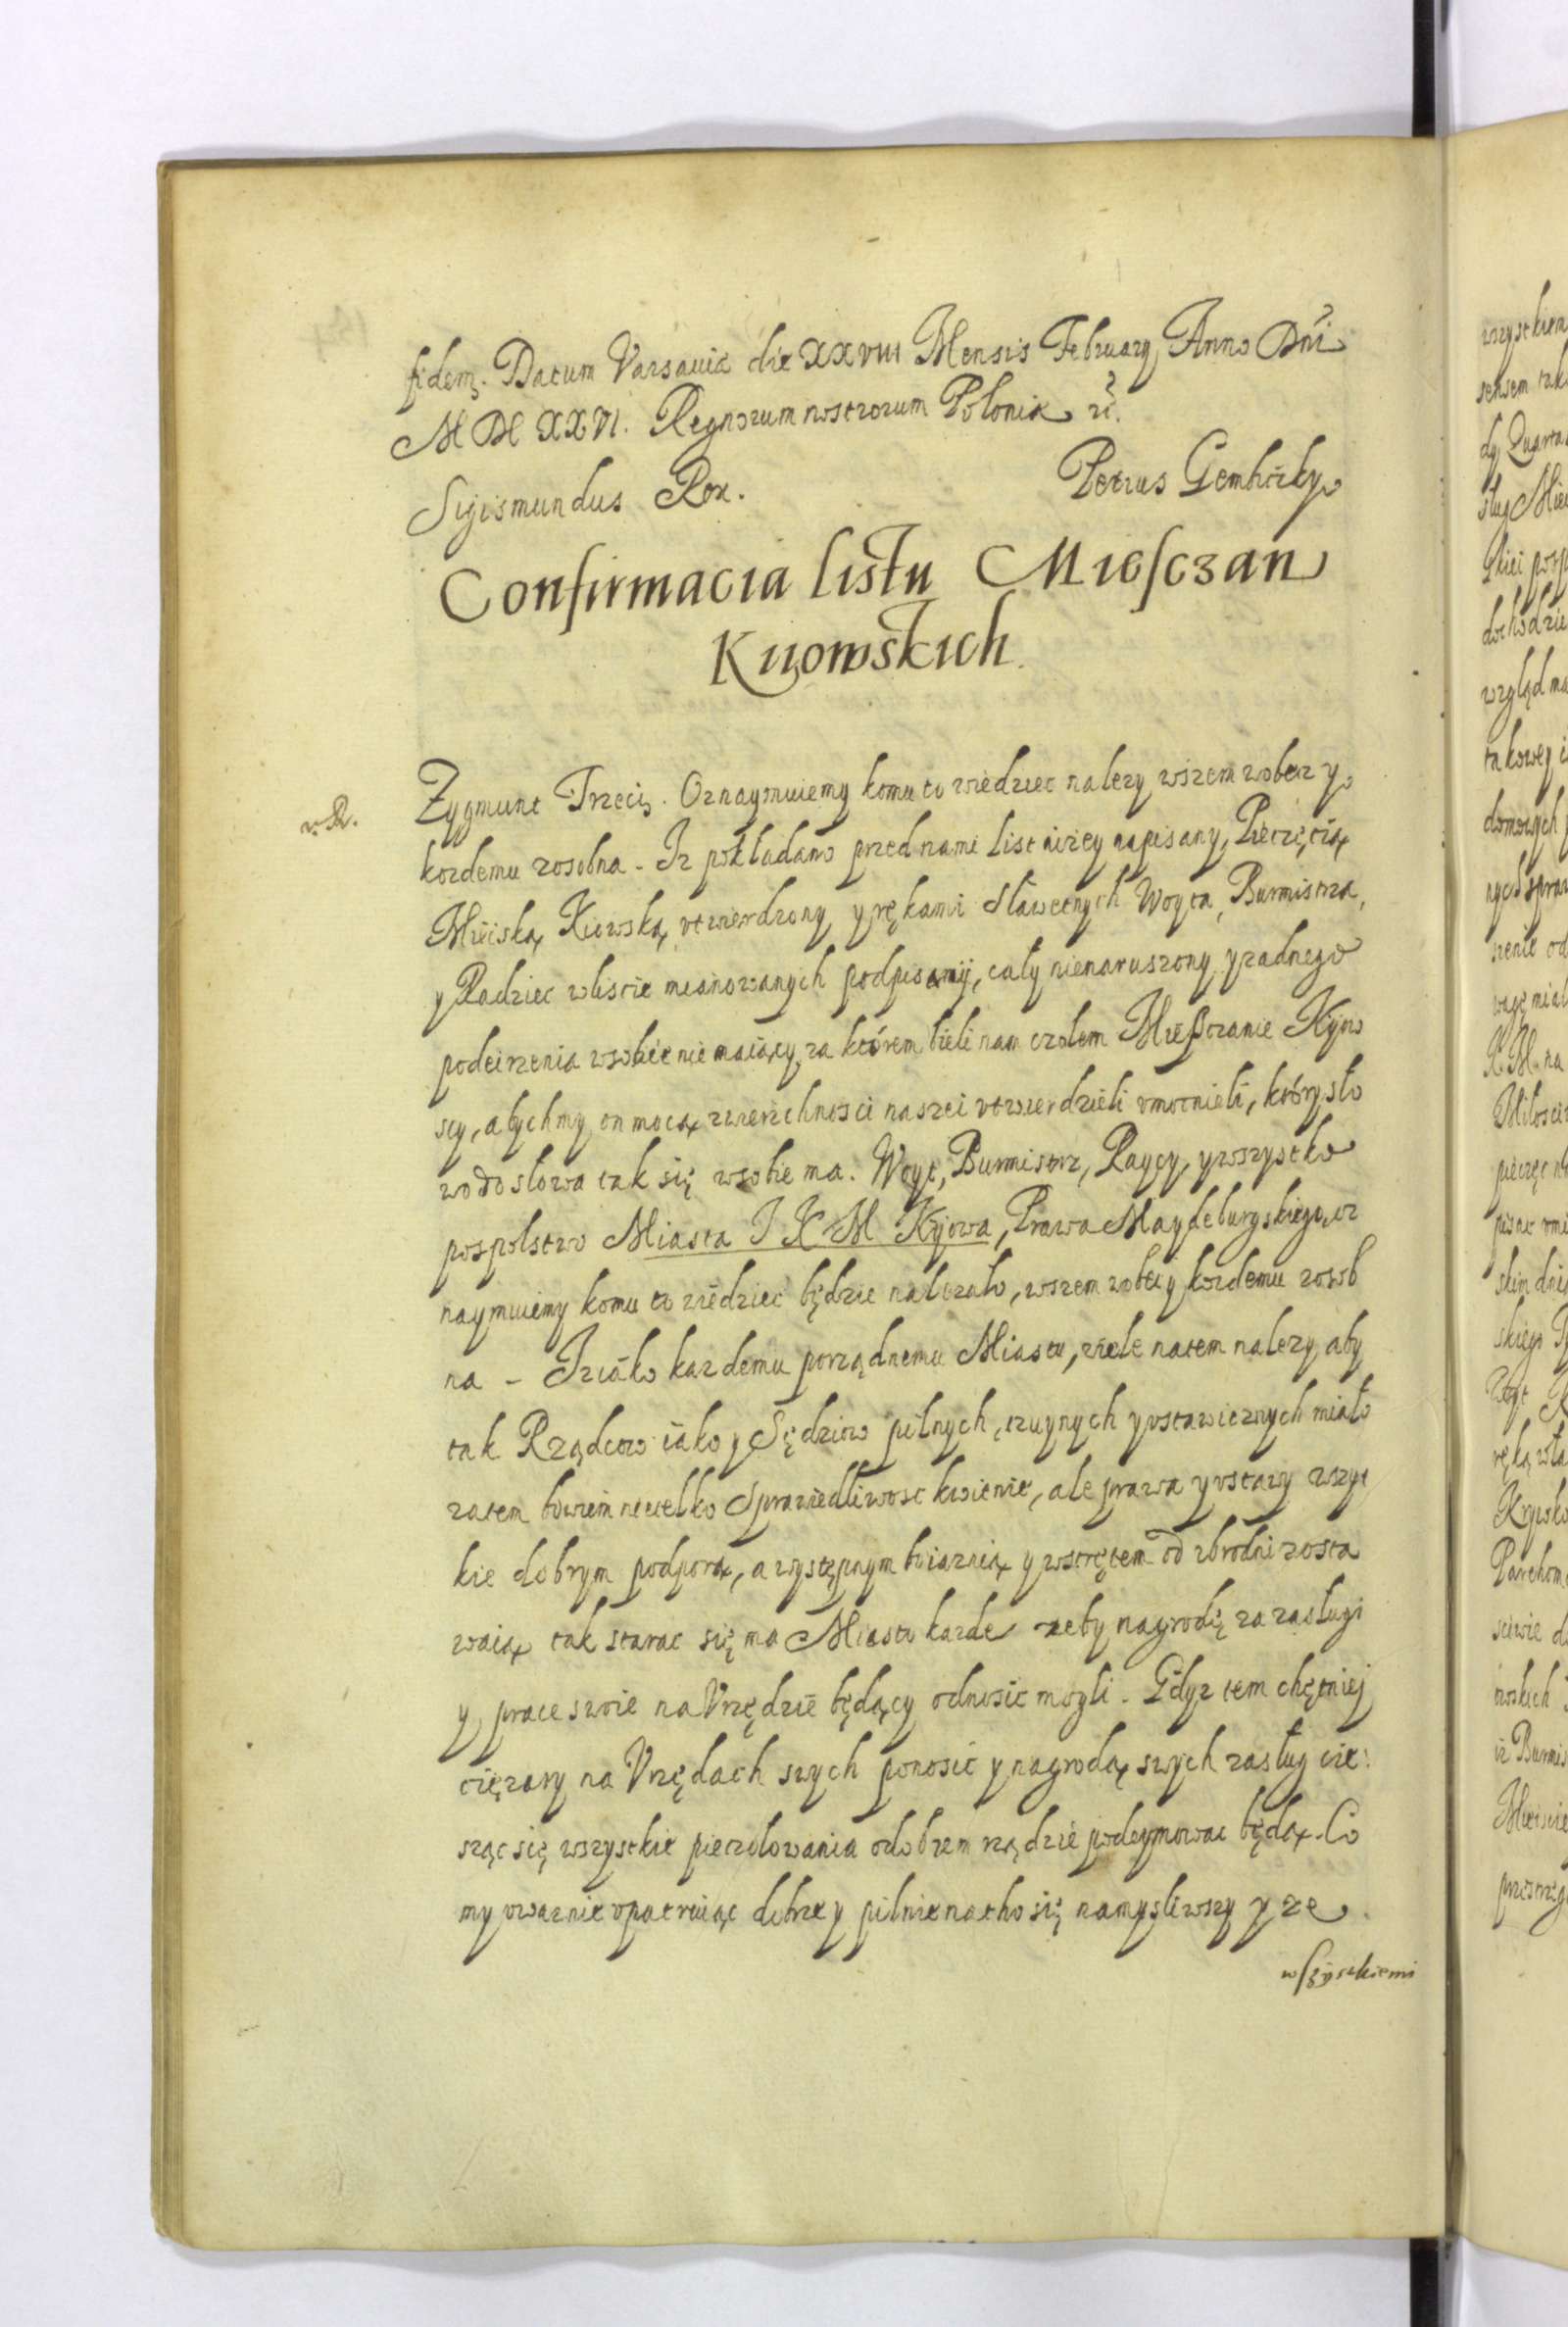 fidem. Datum Varsauiæ die XXVIII Mensis Februarij Anno Dni
M DC XXVI. Regnorum nostrorum Poloniæ etc.
Sigismundus Rex. Petrus Gembicky
Confirmacia listu Miesczan
Kijowskich.
Zygmunt Trzeci. Oznaymuiemy komu to wiedziec nalezy wszem wobecz y
kozdemu zosobna. Iz pokładano przed nami list nizey napisany, Pieczęcią
Mieiską Kiowską vtwierdzony y rękami Sławetnych Woyta, Burmistrza,
y Radziec wliscie mianowanych podpisany, cały nienaruszony y zadnego
podeirzenia wsobie nie maiący, za ktorem bieli nam czołem Miesczanie Kyiow
scy, abychmy on mocą zwierzchnosci naszei vtwierdzieli vmocnieli, który sło
wo do słowa tak się wsobie ma. Woyt, Burmistrz, Raycy, y wszystko
pospolstwo Miasta J K M Kyiowa, Prawa Maydeburyskiego, oz
naymuiemy komu to wiedziec będzie nalezało, wszem wobec y kozdemu zosob
na - Iz iako kazdemu porządnemu Miastu, wiele natem nalezy, aby
tak Rządcow iako y Sędziow pilnych, czuynych y vstawicznych miało
zatem bowiem nie telko Sprawiedliwosc kwienie, ale prawa y vstawy wszyt
kie dobrym podporą, a występnym boiaznią y wstrętem od zbrodni zosta
waią tak starac się ma Miasto kazde zeby nagrodę za zasługi
y prace swoie na Vrzędzie będący odnosic mogli. Gdyz tem chętniej
cięzary na Vrzędach swych ponosic y nagrodą swych zasług cie:
sząc się wszystkie pieczolowania o dobrem rządzie podeymowac będą. Co
my vwaznie vpatruiąc dobrze y pilnie natho się namysliwszy y ze
wszystkiemi